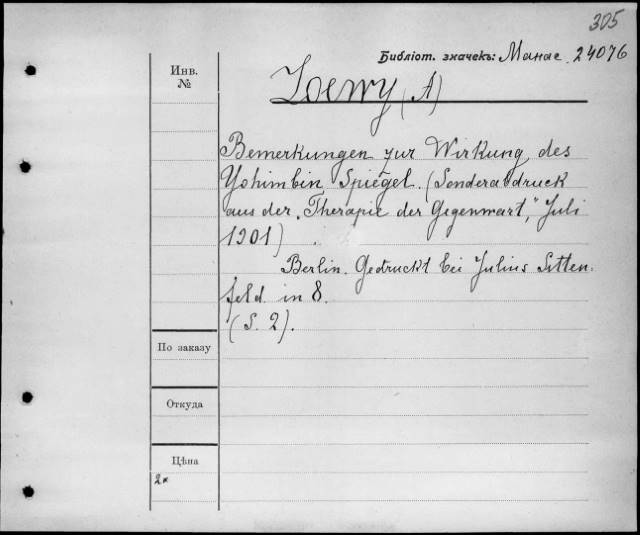 305
Библіот. значекъ: Манас. 24076
Инв. №
Loewy (A)
Bemerkungen zur Wirkung des
Yohimbin Spiegel. (Sonderabdruck
aus der „Therapie der Gegenwart," Juli
1901)
Berlin. Gedruckt bei Julius Sitten-
feld. in 8.
(S. 2).
По заказу
Откуда
Цѣна
2*